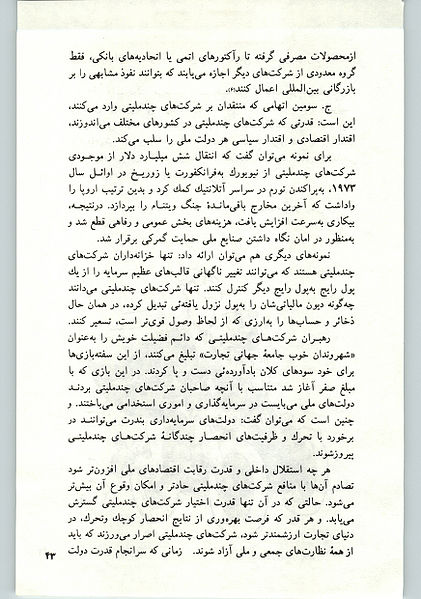 ازمحصولات مصرفی گرفته تا رآکتورهای اتمی یا اتحادیه‌های بانکی، فقط
گروه معدودی از شرکت‌های دیگر اجازه می‌یابند که بتوانند نفوذ مشابهی را بر
بازرگانی بین‌المللی اعمال کنند(۶).
ج. سومین اتهامی که منتقدان بر شرکت‌های چندملیتی وارد می‌کنند،
این است: قدرتی که شرکت‌های چندملیتی در کشورهای مختلف می‌اندوزند،
اقتدار اقتصادی و اقتدار سیاسی هر دولت ملی را سلب می‌کند.
برای نمونه می‌توان گفت که انتقال شش میلیارد دلار از موجودی
شرکت‌های چندملیتی از نیویورك به‌فرانکفورت یا زوریخ در اوائل سال
۱۹۷۳، به‌پراکندن تورم در سراسر آتلانتیك کمك کرد و بدین ترتیب اروپا را
واداشت که آخرین مخارج باقی‌ماندهٔ جنگ ویتنام را بپردازد. درنتیجه،
بیکاری به‌سرعت افزایش یافت، هزینه‌های بخش عمومی و رفاهی قطع شد و
به‌منظور در امان نگاه داشتن صنایع ملی حمایت گمرکی برقرار شد.
نمونه‌های دیگری هم می‌توان ارائه داد: تنها خزانه‌داران شرکت‌های
چندملیتی هستند که می‌توانند تغییر ناگهانی قالب‌های عظیم سرمایه را از یك
پول رایج به‌پول رایج دیگر کنترل کنند. تنها شرکت‌های چندملیتی می‌دانند
چه‌گونه دیون مالیاتی‌شان را به‌پول نزول یافته‌ئی تبدیل کرده، در همان حال
ذخائر و حساب‌ها را به‌ارزی که از لحاظ وصول قوی‌تر است، تسعیر کنند.
رهبران شرکت‌های چندملیتی که دائم فضیلت خویش را به‌عنوان
«شهروندان خوب جامعهٔ جهانی تجارت» تبلیغ می‌کنند، از این سفته‌بازی‌ها
برای خود سودهای کلان بادآورده‌ئی دست و پا کردند. در این بازی که با
مبلغ صفر آغاز شد متناسب با آنچه صاحبان شرکت‌های چندملیتی بردند
دولت‌های ملی می‌بایست در سرمایه‌گذاری و اموری استخدامی می‌باختند. و
چنین است که می‌توان گفت: دولت‌های سرمایه‌داری بندرت می‌توانند در
برخورد با تحرك و ظرفیت‌های انحصار چندگانهٔ شرکت‌های چندملیتی
پیروزشوند.
هر چه استقلال داخلی و قدرت رقابت اقتصادهای ملی افزون‌تر شود
تصادم آن‌ها با منافع شرکت‌های چندملیتی حادتر و امکان وقوع آن بیش‌تر
می‌شود. حالتی که در آن تنها قدرت اختیار شرکت‌های چندملیتی گسترش
می‌یابد. و هر قدر که فرصت بهره‌وری از نتایج انحصار کوچك وتحرك، در
دنیای تجارت ارزشمندتر شود، شرکت‌های چندملیتی اصرار می‌ورزند که باید
از همهٔ نظارت‌های جمعی و ملی آزاد شوند. زمانی که سرانجام قدرت دولت
۴۳